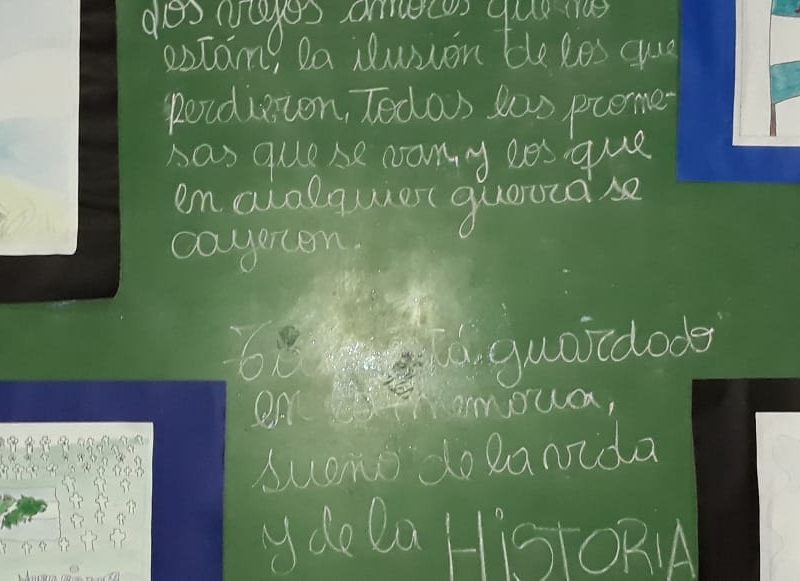 Los viejos amores que no
están, la ilusión de los que
perdieron, Todas las prome-
sas que se van, y los que
en cualquier guerra se
cayeron.
está guardado
en la memoria,
sueño de la vida
y de la HISTORIA